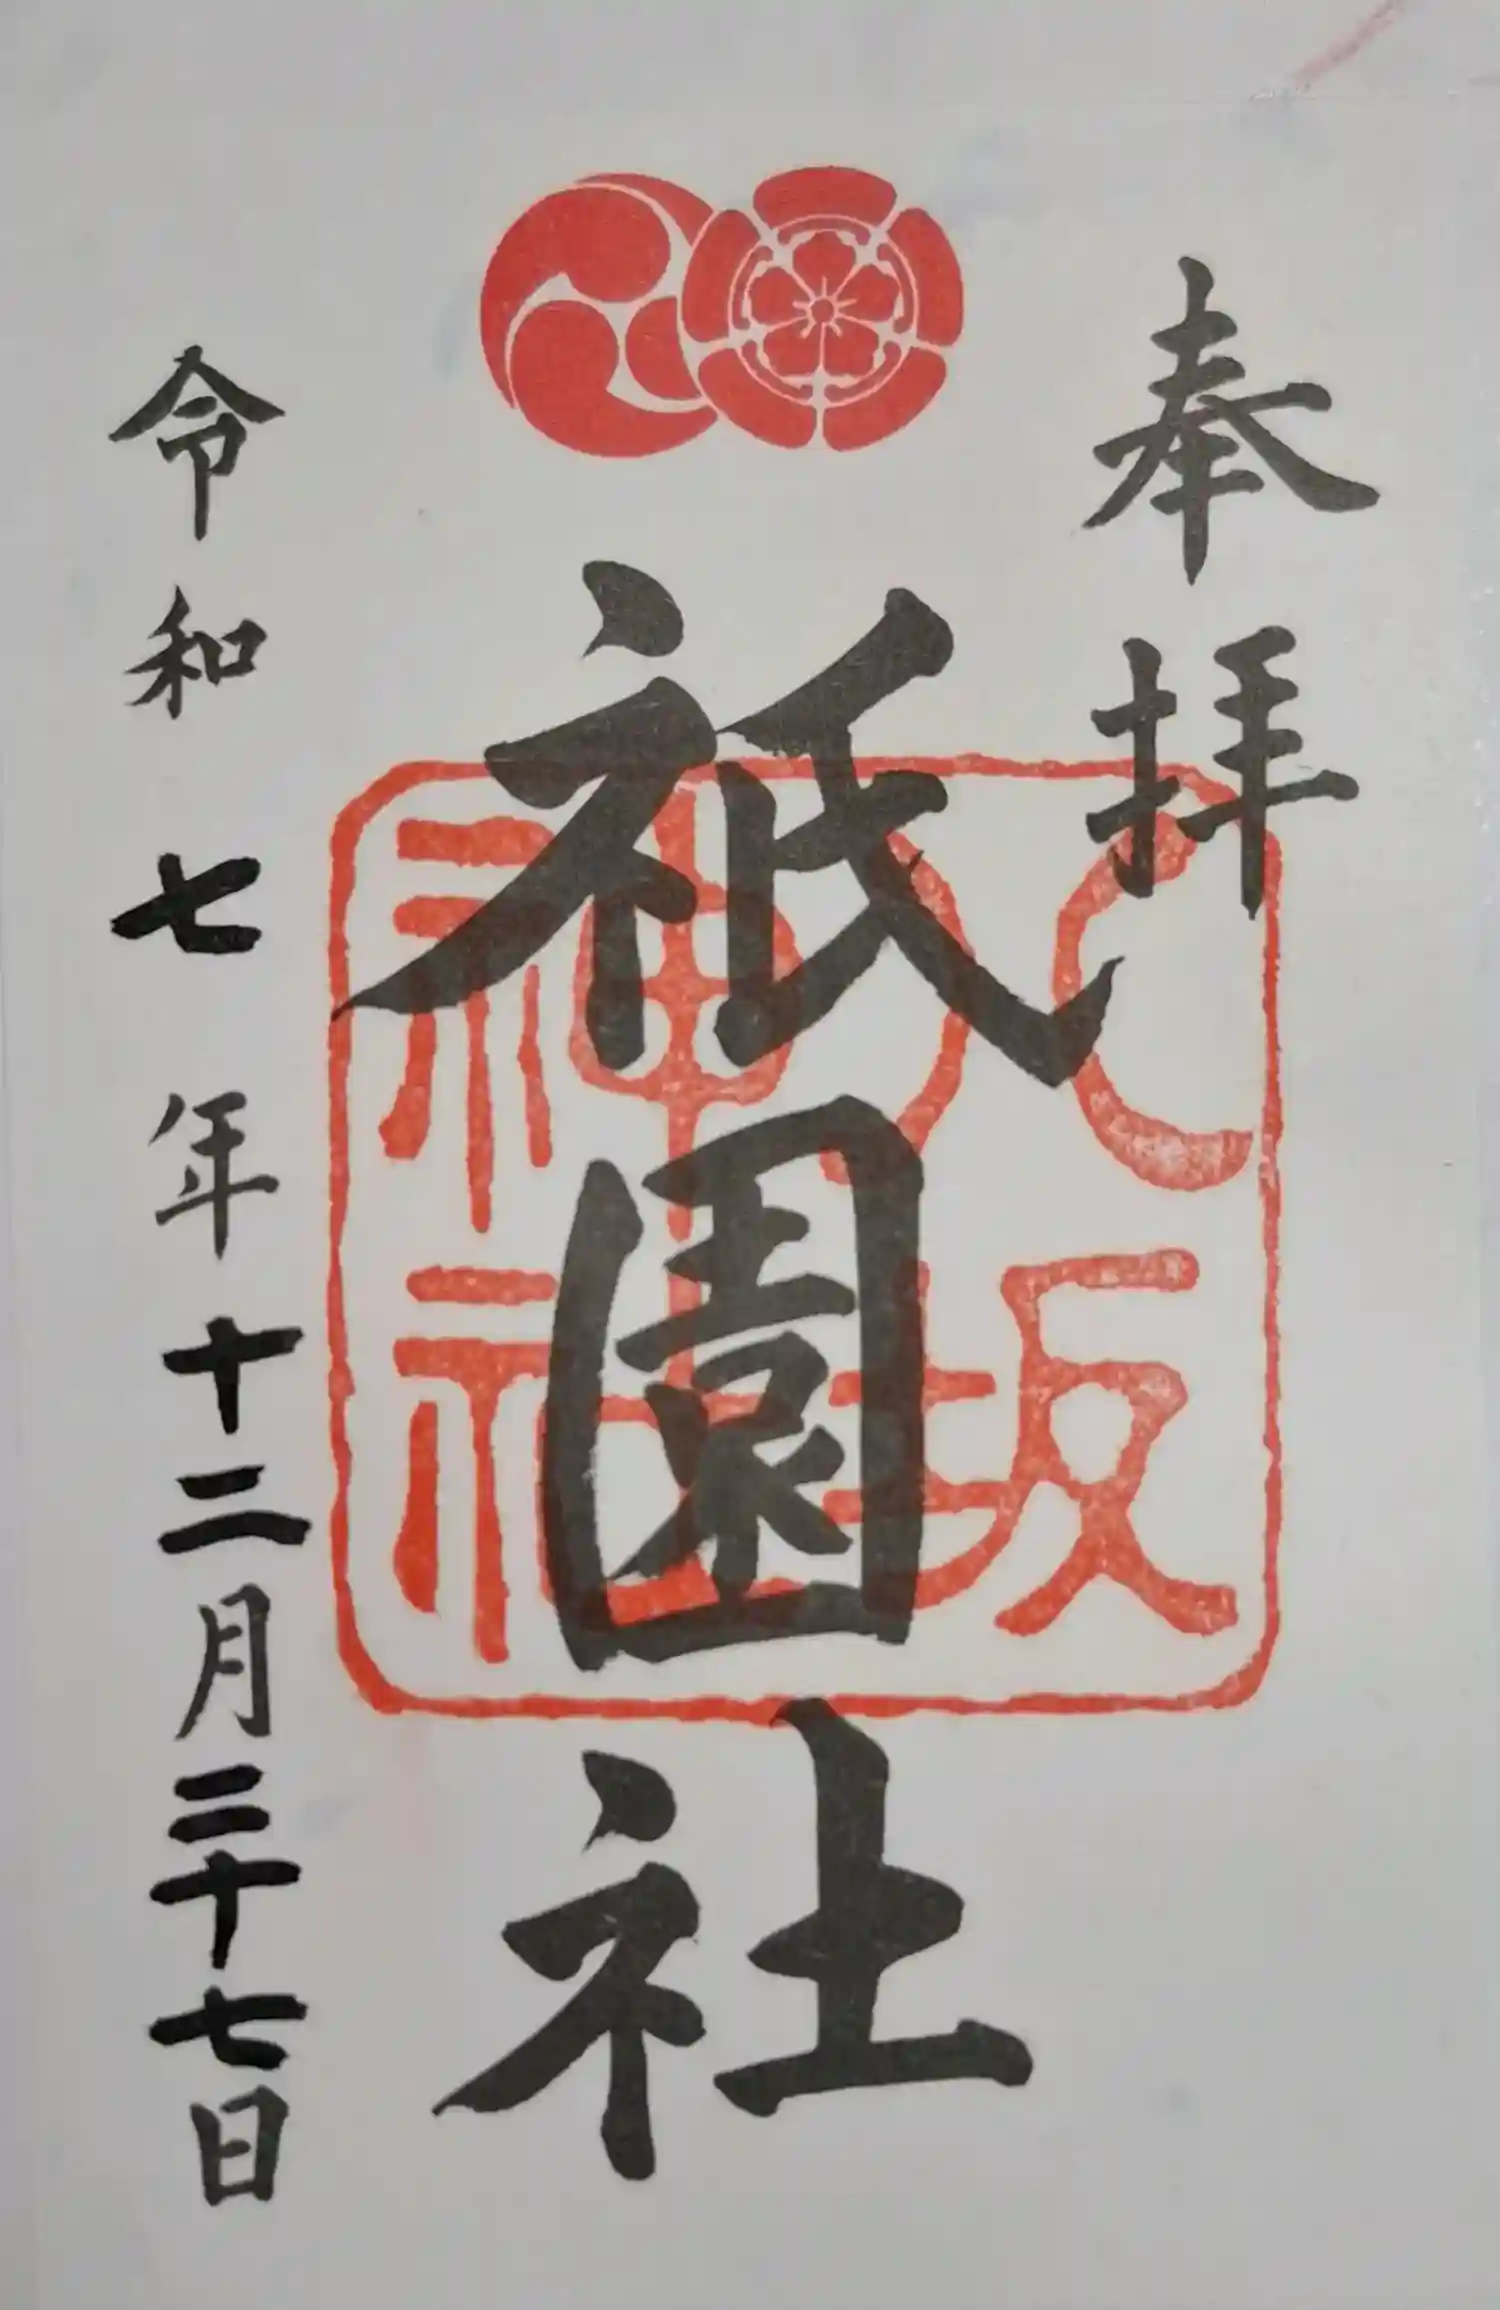 奉拝
祇園社
八坂
神社
令和七年十二月二十七日